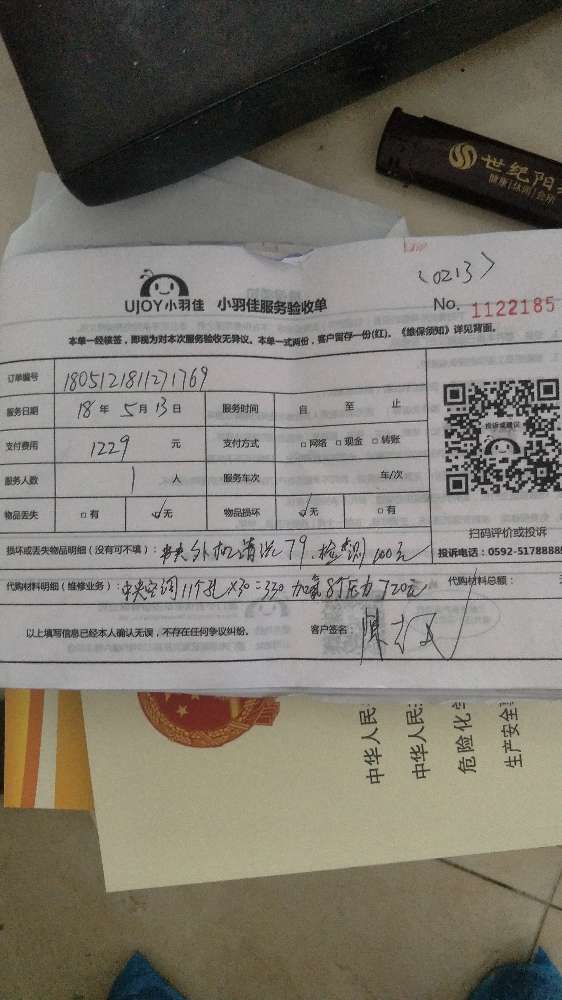 世纪阳
健康|休闲|会所
<0213>
UJOY小羽佳 小羽佳服务验收单
No. 1122185
本单一经核签，即视为对本次服务验收无异议。本单一式两份，客户留存一份(红)。《维保须知》详见背面。
订单编号 1805121811271769
服务日期 18 年 5 月 13 日 服务时间 自 至 止
支付费用 1229 元 支付方式 □网络 □现金 □转账
服务人数 1 人 服务车次 车/次
物品丢失 □有 ☑无 物品损坏 ☑无 □有
投诉或建议
扫码评价或投诉
投诉电话：0592-5178888
损坏或丢失物品明细（没有可不填）：中央外机清洗79.检测100元
代购材料明细（维修业务）：中央空调11个孔×30=330 加氟8个压力720元
代购材料总额：
以上填写信息已经本人确认无误，不存在任何争议纠纷。 客户签名：
中华人民
中华人民
危险化学
生产安全